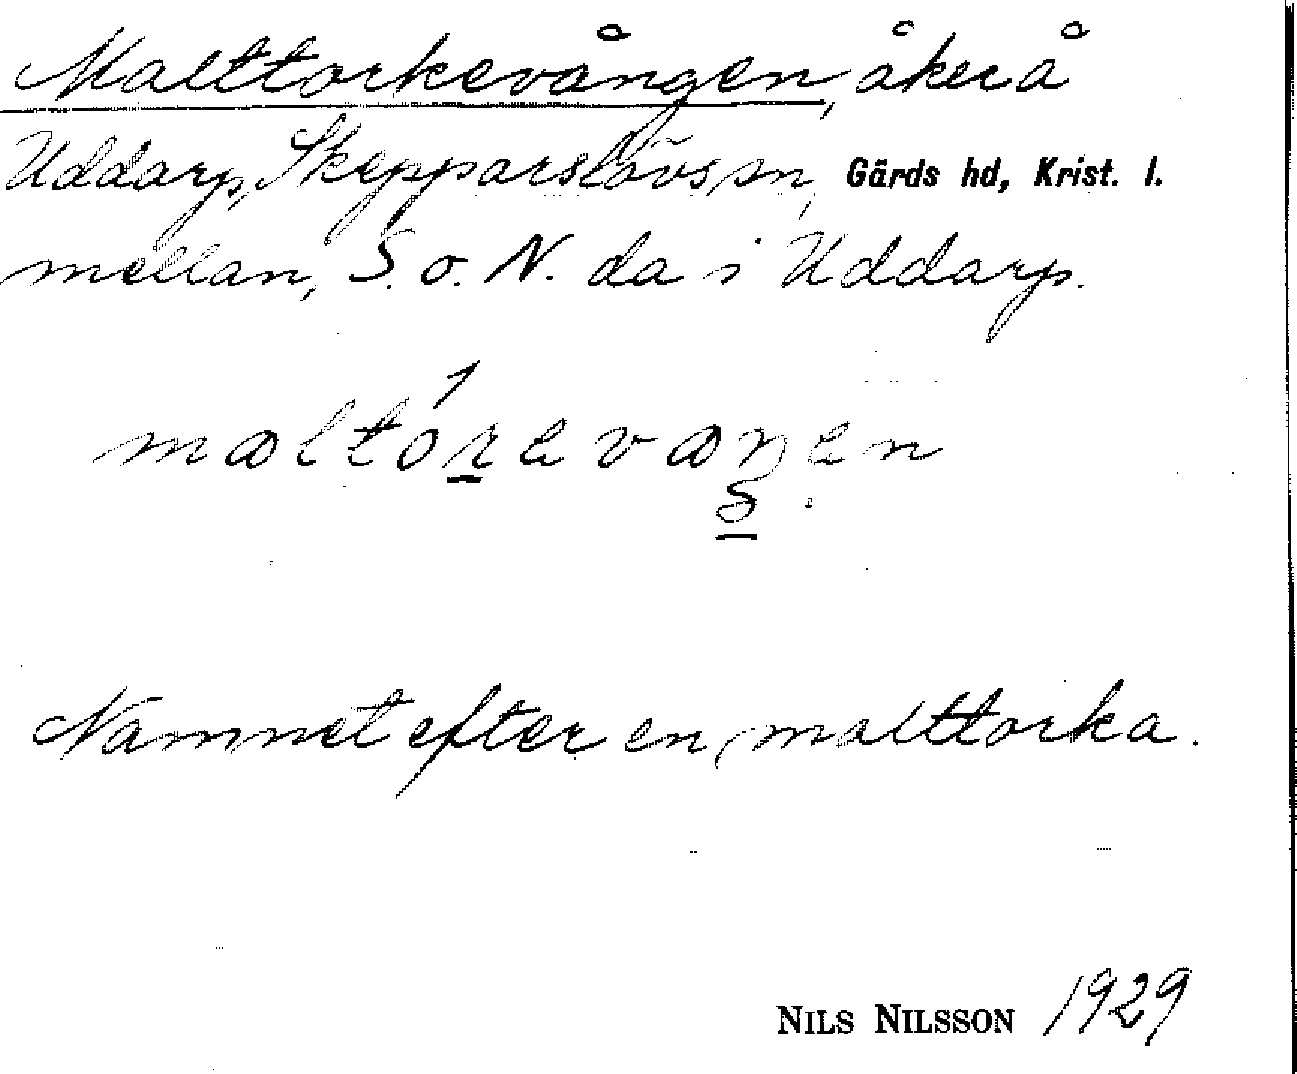 Malttorkevången, åker å
Uddarp, Skepparslövs sn, Gärds hd, Krist. l.
mellan, S. o. N. da i Uddarp.
Namnet efter en, malttorka.
NILS NILSSON 1929